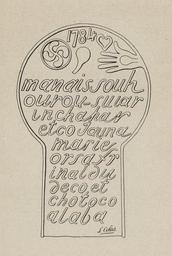 1784
manaissouh
ourou-suiar
inchapar
etco Jayna
marie
orsafr
inaldu
deco, et
chotoco
alaba